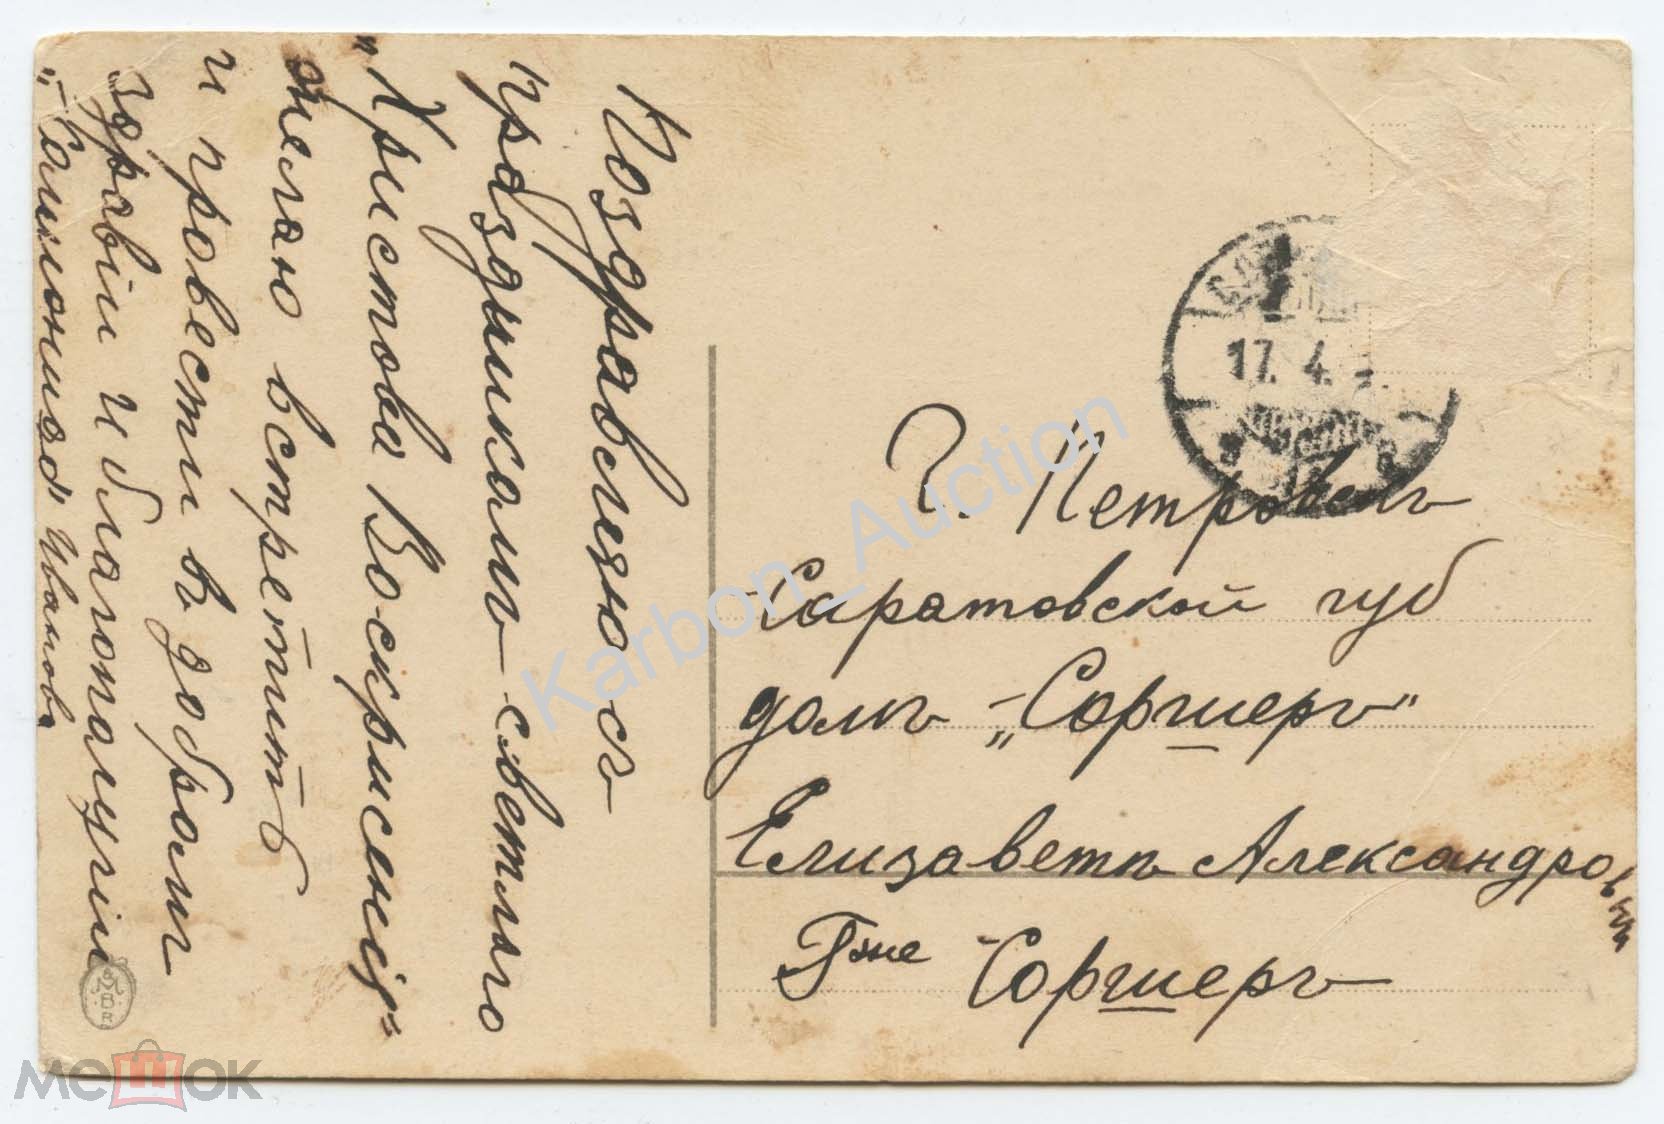 Поздравляю съ
праздникомъ светлого
"Христова Воскрисенія"
желаю встретить
и провести въ добром
здравіи и благополучіи
Иванова
17. 4.
Г. Петровскъ
Саратовской губ
домъ „Соршеръ"
Елизаветъ Александровнъ
Гже Соршеръ
MBR
Karbon_Auction
мешок